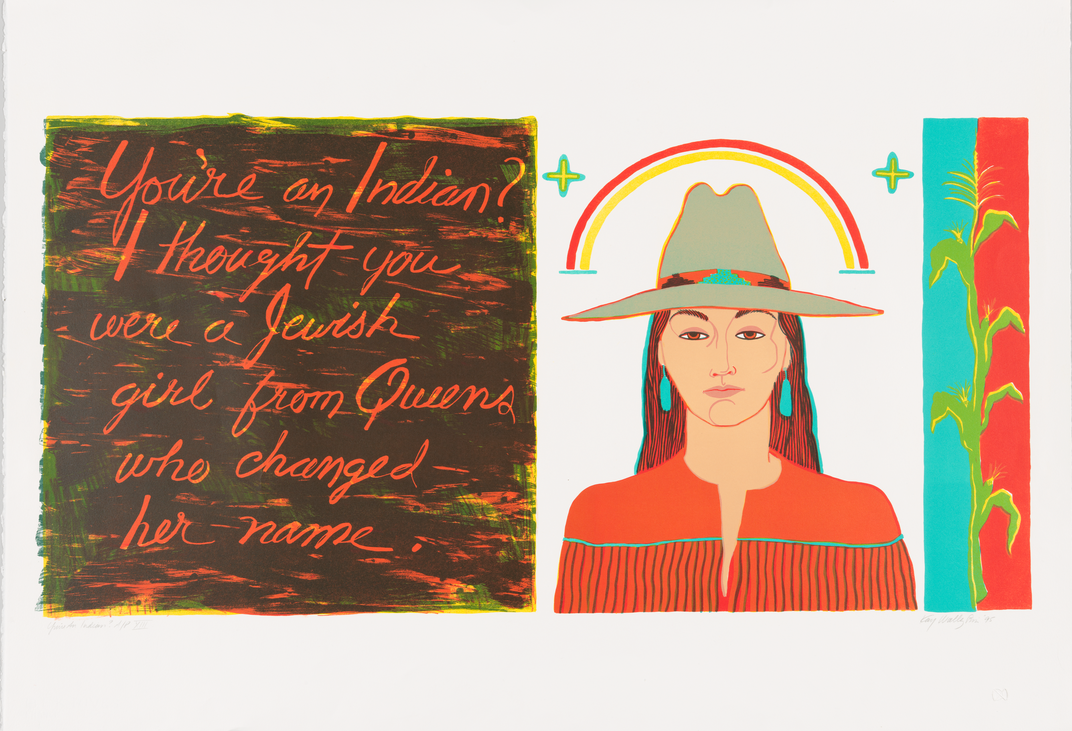 You're an Indian?
I thought you
were a Jewish
girl from Queens
who changed
her name.
Kay WalkingStick 95